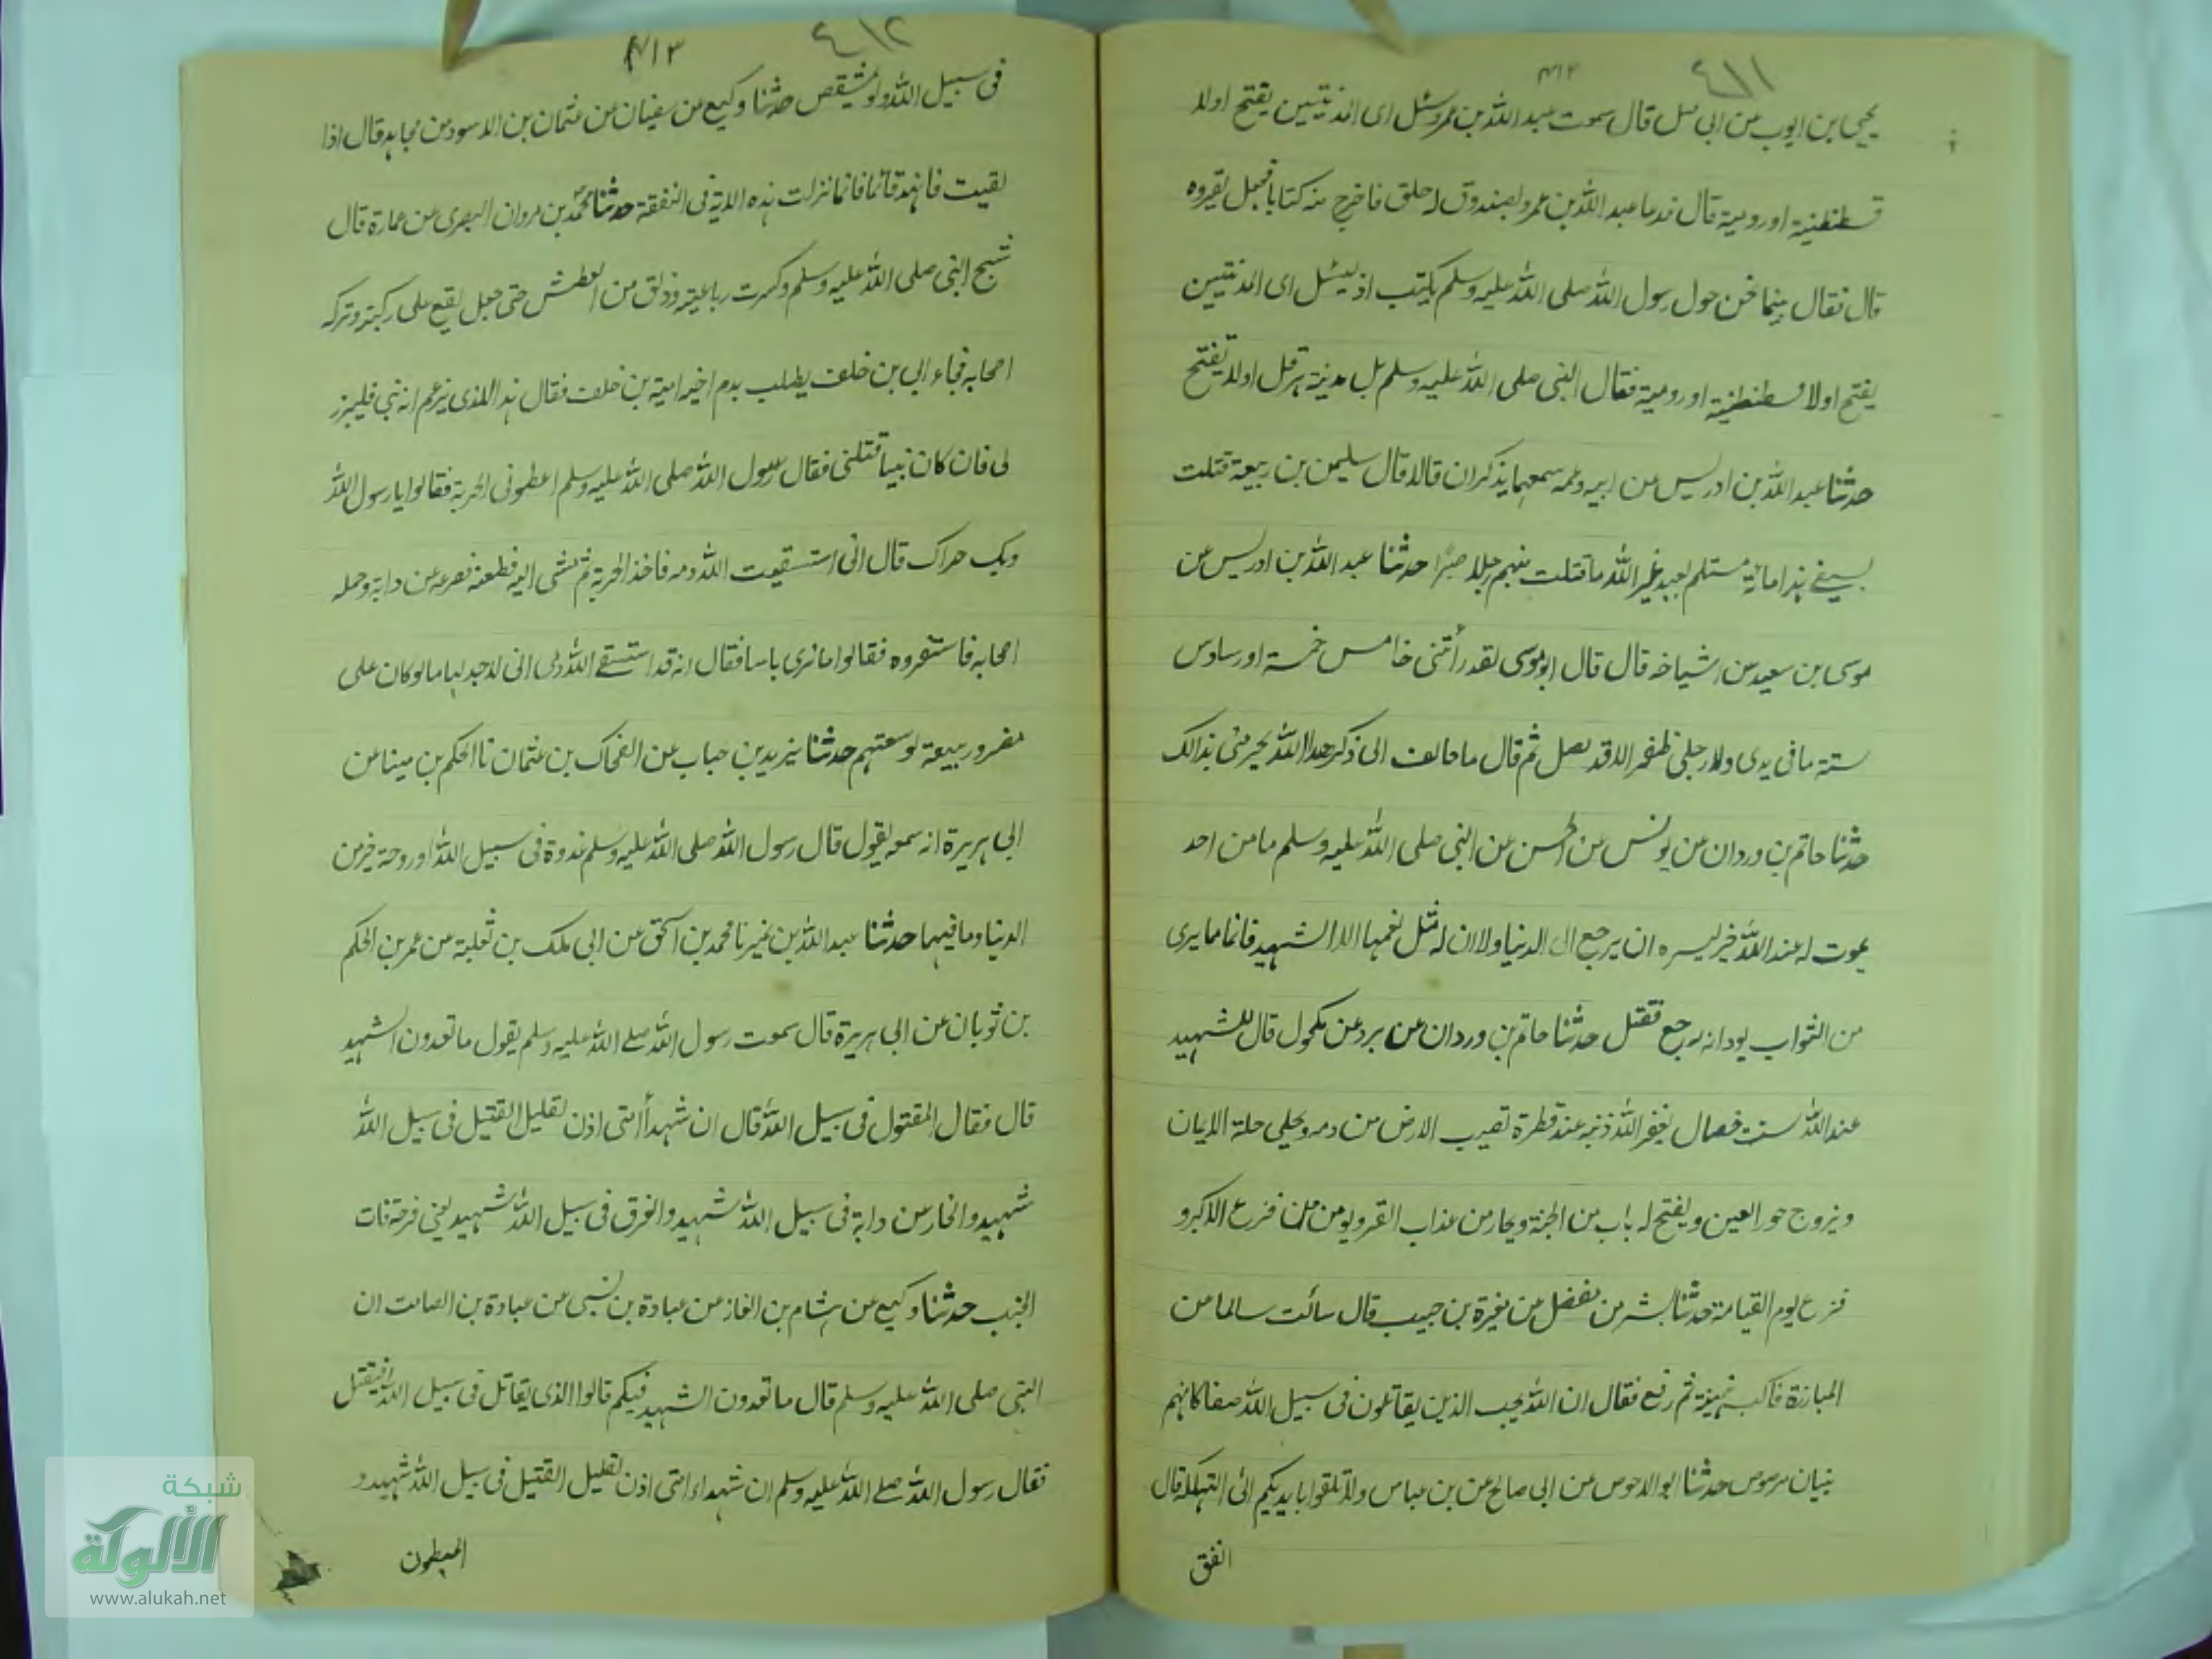 ٤١١
٤١٢
يحيى بن ايوب عن ابى قبيل قال سمعت عبد الله بن عمر وسئل اى المدينتين يفتح اولا
قسطنطنية او رومية قال فدعا عبد الله بن عمرو بصندوق له حلق فاخرج منه كتابا فجعل يقروه
قال فقال بينما نحن حول رسول الله صلى الله عليه وسلم يكتب اذ سئل اى المدينتين
يفتح اولا قسطنطنية او رومية فقال النبى صلى الله عليه وسلم بل مدينة هرقل اولا تفتح
حدثنا عبد الله بن ادريس عن ابيه وعمه سمعهما يذكران قالا قال سليمن بن ربيعة قتلت
بسيفى هذا مائة مستلم يعبد غير الله ما قتلت منهم رجلا صبرا حدثنا عبد الله بن ادريس عن
موسى بن سعيد عن اشياخه قال قال ابو موسى لقد رأتنى خامس خمسة او سادس
ستة ما فى يدى ولا رجلى ظفر الا قد نصل ثم قال ما خالف الى ذكر هذا الله يجزينى بذالك
حدثنا حاتم بن وردان عن يونس عن الحسن عن النبى صلى الله عليه وسلم ما من احد
يموت له عند الله خير يسره ان يرجع الى الدنيا ولا ان له مثل نعيمها الا الشهيد فانما مما يرى
من الثواب يود انه يرجع فقتل حدثنا حاتم بن وردان عن برد عن مكحول قال للشهيد
عند الله ست خصال يغفر الله ذنبه عند قطرة تصيب الارض من دمه ويحلى حلة الايمان
ويزوج حور العين ويفتح له باب من الجنة ويجار من عذاب القبر ويومن من فزع الاكبر و
فزع يوم القيامة حدثنا بشر بن مفضل عن مغيرة بن حبيب قال سالت سالما عن
المبارزة فاكب هنيزة ثم رفع فقال ان الله يحب الذين يقاتلون فى سبيل الله صفا كانهم
بنيان مرصوص حدثنا ابو الاحوص عن ابى صالح عن بن عباس ولا تلقوا بايديكم الى التهلكة قال
انفق
٤١٢
٤١٣
فى سبيل الله ولو بمشقص حدثنا وكيع عن سفيان عن عثمان بن الاسود عن مجاهد قال اذا
لقيت فانهد قائما فانما نزلت هذه الاية فى النفقة حدثنا محمد بن مروان البصرى عن عمارة قال
شج النبى صلى الله عليه وسلم وكسرت رباعيته وذلق من العطش حتى جعل يقع على ركبتيه وتركه
اصحابه فجاء ابى بن خلف يطلب بدم اخيه امية بن خلف فقال هذا الذى يزعم انه نبى فليبرز
لى فان كان نبيا قتلنى فقال رسول الله صلى الله عليه وسلم اعطونى الحربة فقالوا يا رسول الله
وبك حراك قال انى استسقيت الله دمه فاخذ الحربة ثم مشى اليه فطعنه فصرعه عن دابته وحمله
اصحابه فاستنقروه فقالوا ما نرى باسا فقال انه قد استسقى الله دمى انى لاجد لها ما لو كان على
مضر وربيعة لوسعتهم حدثنا يزيد بن حباب عن الضحاك بن عثمان نا الحكم بن مينا عن
ابى هريرة انه سمعه يقول قال رسول الله صلى الله عليه وسلم غدوة فى سبيل الله او روحة خير من
الدنيا وما فيها حدثنا عبد الله بن نمير نا محمد بن اسحق عن ابى ملك بن ثعلبة عن عمر بن الحكم
بن ثوبان عن ابى هريرة قال سمعت رسول الله صلى الله عليه وسلم يقول ما تعدون الشهيد
قال فقال المقتول فى سبيل الله قال ان شهدأ امتى اذن لقليل القتيل فى سبيل الله
شهيد والخار عن دابة فى سبيل الله شهيد والغرق فى سبيل الله شهيد يعنى قرحة ذات
الجنب حدثنا وكيع عن هشام بن الغاز عن عبادة بن نسى عن عبادة بن الصامت ان
النبى صلى الله عليه وسلم قال ما تعدون الشهيد فيكم قالوا الذى يقاتل فى سبيل الله فيقتل
فقال رسول الله صلى الله عليه وسلم ان شهداء امتى اذن لقليل القتيل فى سبيل الله شهيد و
المبطون
شبكة
الألوكة
www.alukah.net